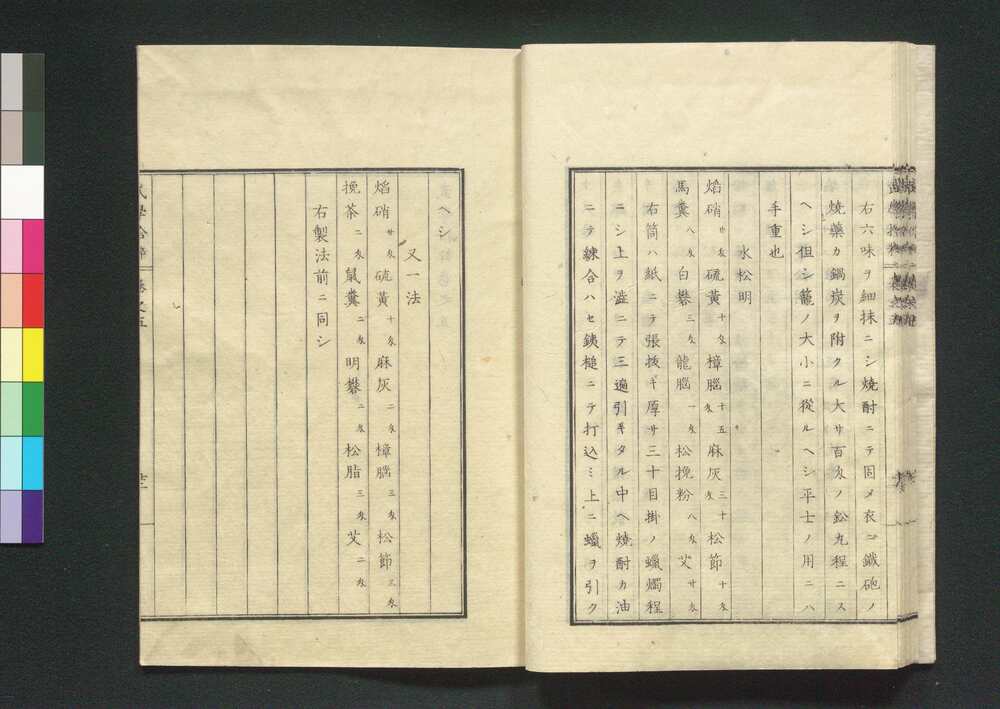 右六味ヲ細抹ニシ焼酎ニテ固メ衣ニ鐵砲ノ
焼藥カ鍋炭ヲ附タル大サ百匁ノ鈆丸程ニス
ヘシ但シ籠ノ大小ニ從ルヘシ平士ノ用ニハ
手重也
水松明
焔硝廿匁硫黄十匁樟腦十五匁麻灰三十匁松節十匁
馬糞八匁白礬三匁龍腦一匁松挽粉八匁艾廿匁
右筒ハ紙ニテ張抜キ厚サ三十目掛ノ蠟燭程
ニシ上ヲ澁ニテ三遍引キタル中ヘ焼酎カ油
ニテ練合ハセ鉄槌ニテ打込ミ上ニ蠟ヲ引ク
ヘシ
又一法
焔硝廿匁硫黄十匁麻灰二匁樟腦三匁松節三匁
挽茶二匁鼠糞二匁明礬二匁松脂三匁艾二匁
右製法前ニ同シ